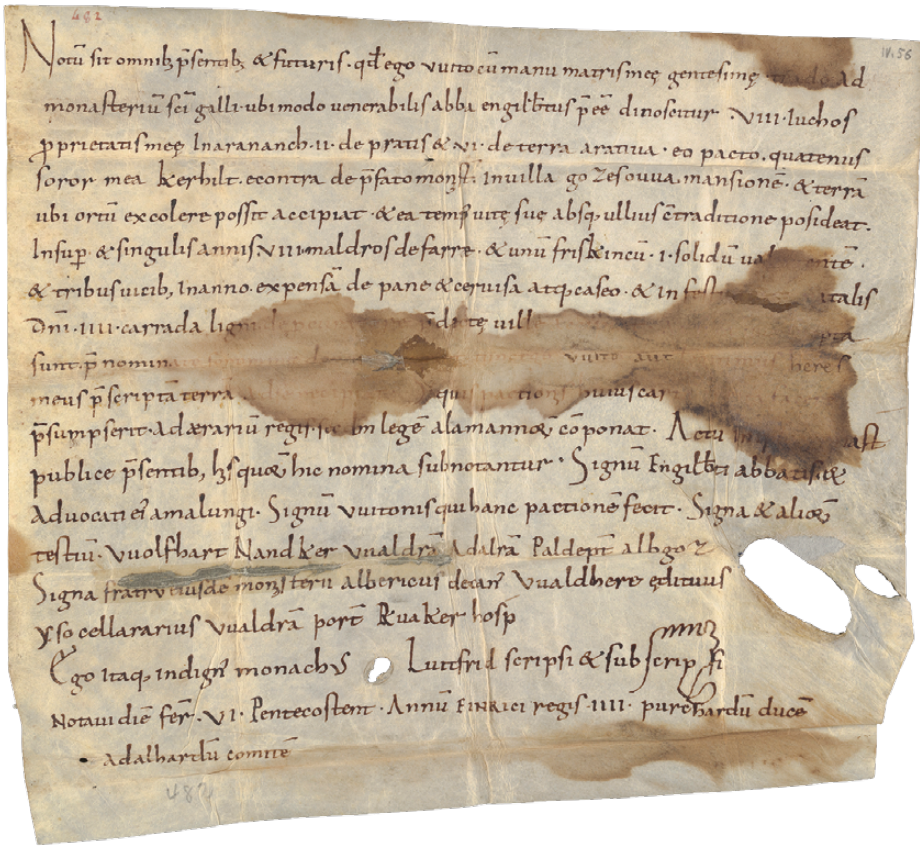 482
IV. 56
Notū sit omnib; p̄sentib; & futuris · qđ ego vuito cū manu matris meę gentesimę · trado ad
monasteriū sc̄i galli · ubi modo venerabilis abba engilb̄tus p̄eē dinoscitur · VIII · Iuchos
ꝓprietatis meę In aranauch · II · de pratis & VI · de terra arativa · eo pacto · quatenus
soror mea kerhilt · econtra de p̄fato monst̄ · In villa gozesouva mansionē · & terrā
ubi ortū excolere possit accipiat · & ea temp̄ vitę suę absq; ullius c̄traditione posideat ·
Insup̄ & singulis annis · VIII · maldros de farre · & unū friskincū · I · solidū
& tribus vicib; In anno · expensā de pane & cervisa atq; caseo · & in fest italis
Dn̄i · IIII · carrada lign p̄dictę vill pta
sunt · p̄nomin vuito aut heres
meus p̄scriptā terrā quis pactionis huius car
p̄sumpserit · ad ærariū regis In legē alamannoꝝ cōponat · Actū ast
publice p̄sentib; his quoꝝ hic nomina subnotantur · Signū Engilb̄ti abbatis &
advocati ei' amalungi · Signū vvitonis qui hanc pactionē fecit · Signa & alioꝝ
testiū · vvolfhart Nandker vvaldrā Adalrā Paldep̄t albgoz
Signa fratrū eiusdē monasterii albericus decan' Vvaldhere ędituus
yso cellararius Vvaldrā portī Ruaker hosp̄
Ego Itaq; indign' monachus Luitfrid scripsi & subscripsi
Notavi diē fer̄ · VI · Pentecosten · Annū EINRICI regis · IIII · purchardū ducē
· adalhartū comitē
482